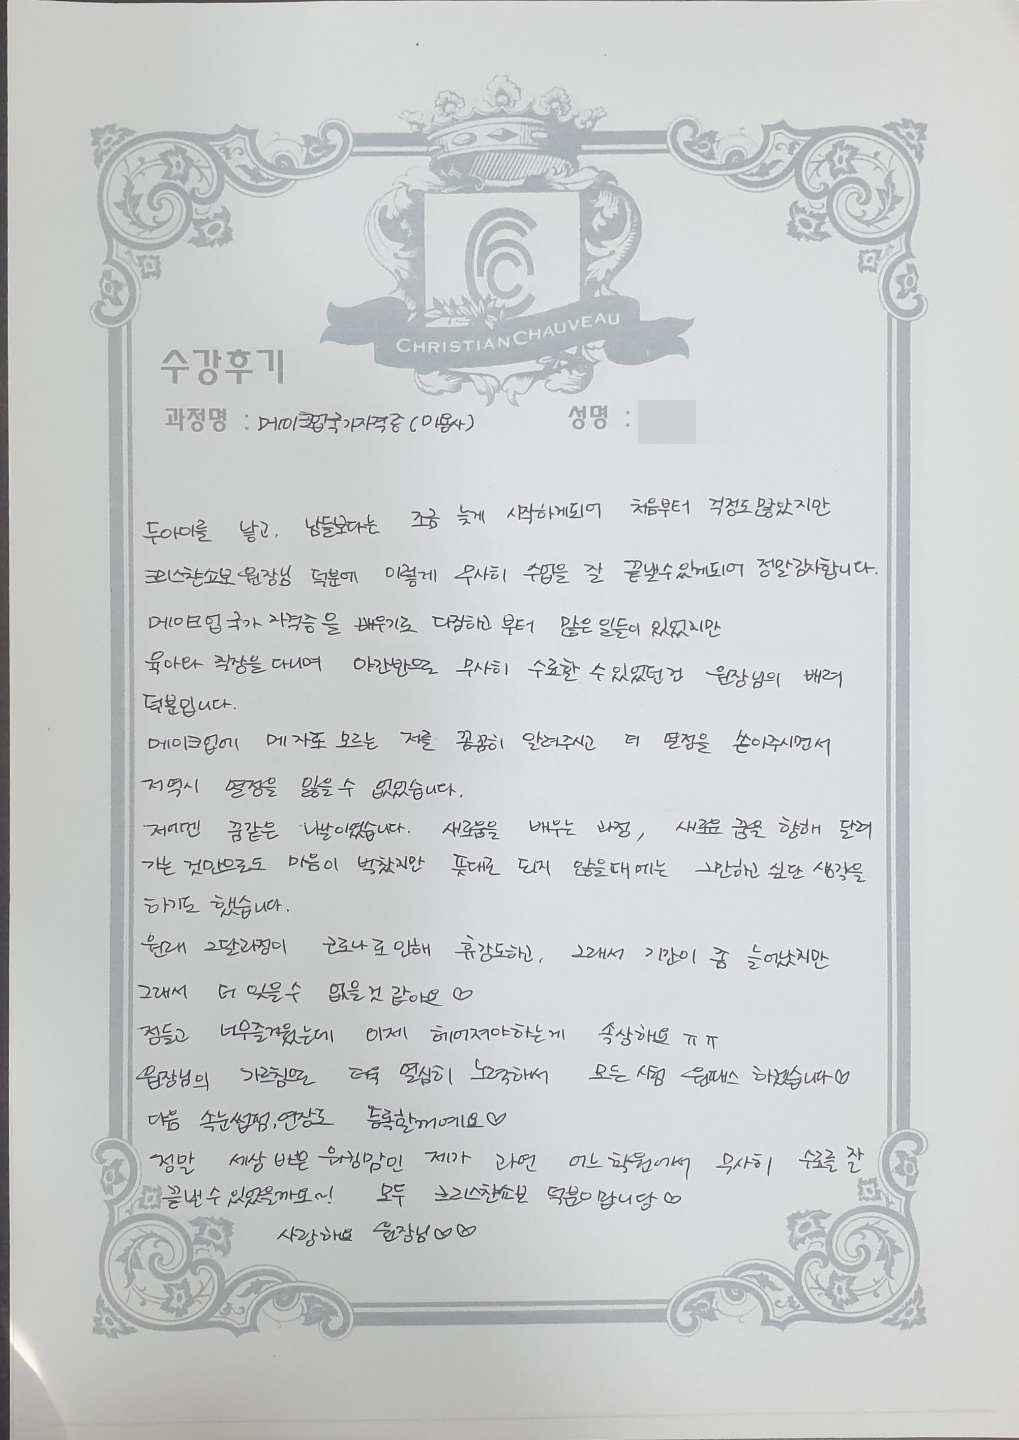 CHRISTIAN CHAUVEAU
수강후기
과정명 : 메이크업국가자격증(미용사) 성명 :
두아이를 낳고, 남들보다는 조금 늦게 시작하게되어 처음부터 걱정도많았지만
크리스찬쇼보 원장님 덕분에 이렇게 무사히 수업을 잘 끝낼수있게되어 정말감사합니다.
메이크업국가 자격증을 배우기로 다짐하고 부터 많은 일들이 있었지만
육아와 직장을 다니며 야간반으로 무사히 수료할 수 있었던건 원장님의 배려
덕분입니다.
메이크업에 메 자도 모르는 저를 꼼꼼히 알려주시고 더 열정을 쏟아주시면서
저역시 열정을 잃을수 없었습니다.
저에겐 꿈같은 나날이였습니다. 새로움을 배우는 과정, 새로운 꿈을 향해 달려
가는 것만으로도 마음이 벅찼지만 뜻대로 되지 않을때에는 그만하고 싶단 생각을
하기도 했습니다.
원래 2달과정이 코로나로 인해 휴강도하고, 그래서 기간이 좀 늘어났지만
그래서 더 잊을수 없을것 같아요 ♡
정들고 너무즐거웠는데 이제 헤어져야하는게 속상해요 ㅠㅠ
원장님의 가르침으로 더욱 열심히 노력해서 모든 시험 원패스 하겠습니다♡
다음 속눈썹펌,연장도 등록할꺼예요♡
정말 세상 바쁜 워킹맘인 제가 과연 어느 학원에서 무사히 수료를 잘
끝낼수 있었을까요~! 모두 크리스찬쇼보 덕분이랍니당♡
사랑해요 원장님♡♡